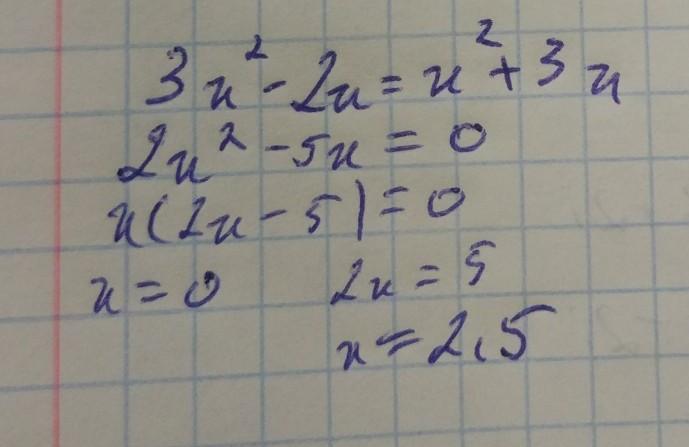 3x² - 2x = x² + 3x
2x² - 5x = 0
x(2x - 5) = 0
x = 0 2x = 5
x = 2,5